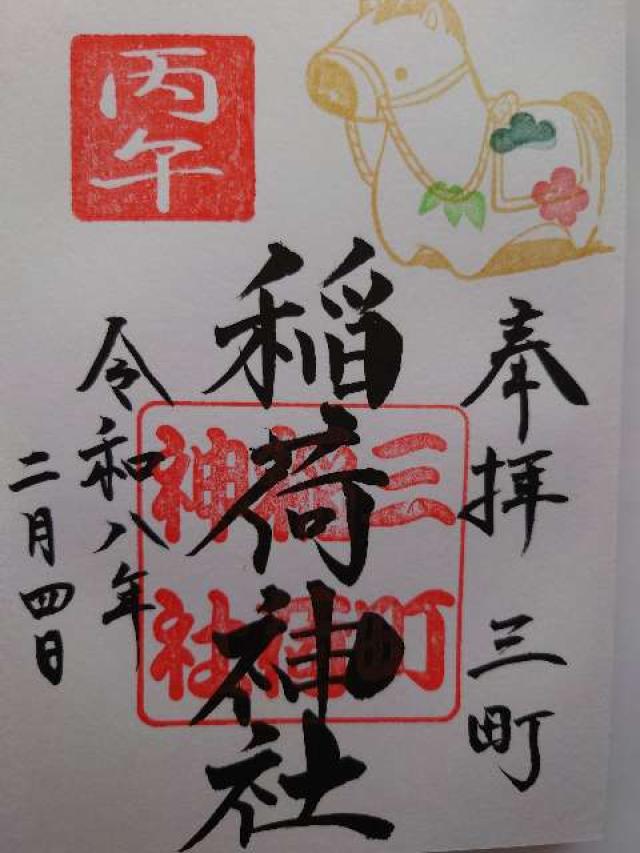 奉拝 三町
稲荷神社
令和八年
二月四日
丙午
三町
稲荷
神社